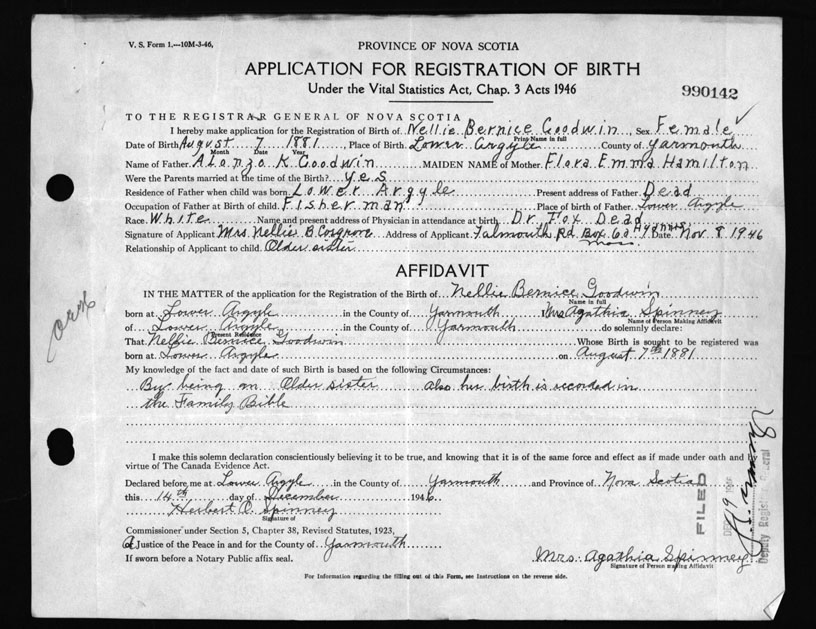 V. S. Form 1.—10M-3-46,
PROVINCE OF NOVA SCOTIA
APPLICATION FOR REGISTRATION OF BIRTH
Under the Vital Statistics Act, Chap. 3 Acts 1946
990142
TO THE REGISTRAR GENERAL OF NOVA SCOTIA
I hereby make application for the Registration of Birth of Nellie Bernice Goodwin, Sex Female
Print Name in full
Date of Birth August 7 1881, Place of Birth Lower Argyle County of Yarmouth
Month Date Year
Name of Father Alonzo K Goodwin MAIDEN NAME of Mother Flora Emma Hamilton
Were the Parents married at the time of the Birth? Yes
Residence of Father when child was born Lower Argyle Present address of Father Dead
Occupation of Father at Birth of child Fisherman Place of birth of Father Lower Argyle
Race White Name and present address of Physician in attendance at birth Dr Fox Dead
Signature of Applicant Mrs Nellie B Cosgrove Address of Applicant Falmouth Rd Box 60 Hyannis Date Nov 8 1946
Mass.
Relationship of Applicant to child Older sister
AFFIDAVIT
IN THE MATTER of the application for the Registration of Birth of Nellie Bernice Goodwin
Name in full
born at Lower Argyle in the County of Yarmouth Mrs Agathia Spinney
Name of Person Making Affidavit
of Lower Argyle in the County of Yarmouth do solemnly declare:
Present Residence
That Nellie Bernice Goodwin Whose Birth is sought to be registered was
born at Lower Argyle on August 7th 1881
My knowledge of the fact and date of such Birth is based on the following Circumstances:
By being an Older sister also her birth is recorded in
the Family Bible
I make this solemn declaration conscientiously believing it to be true, and knowing that it is of the same force and effect as if made under oath and
virtue of The Canada Evidence Act.
Declared before me at Lower Argyle in the County of Yarmouth and Province of Nova Scotia
this 14th day of December 1946.
Herbert O. Spinney
Signature of
Commissioner under Section 5, Chapter 38, Revised Statutes, 1923,
a Justice of the Peace in and for the County of Yarmouth
If sworn before a Notary Public affix seal.
Mrs. Agathia Spinney
Signature of Person making Affidavit
For Information regarding the filling out of this Form, see Instructions on the reverse side.
FILED
Deputy Registrar General